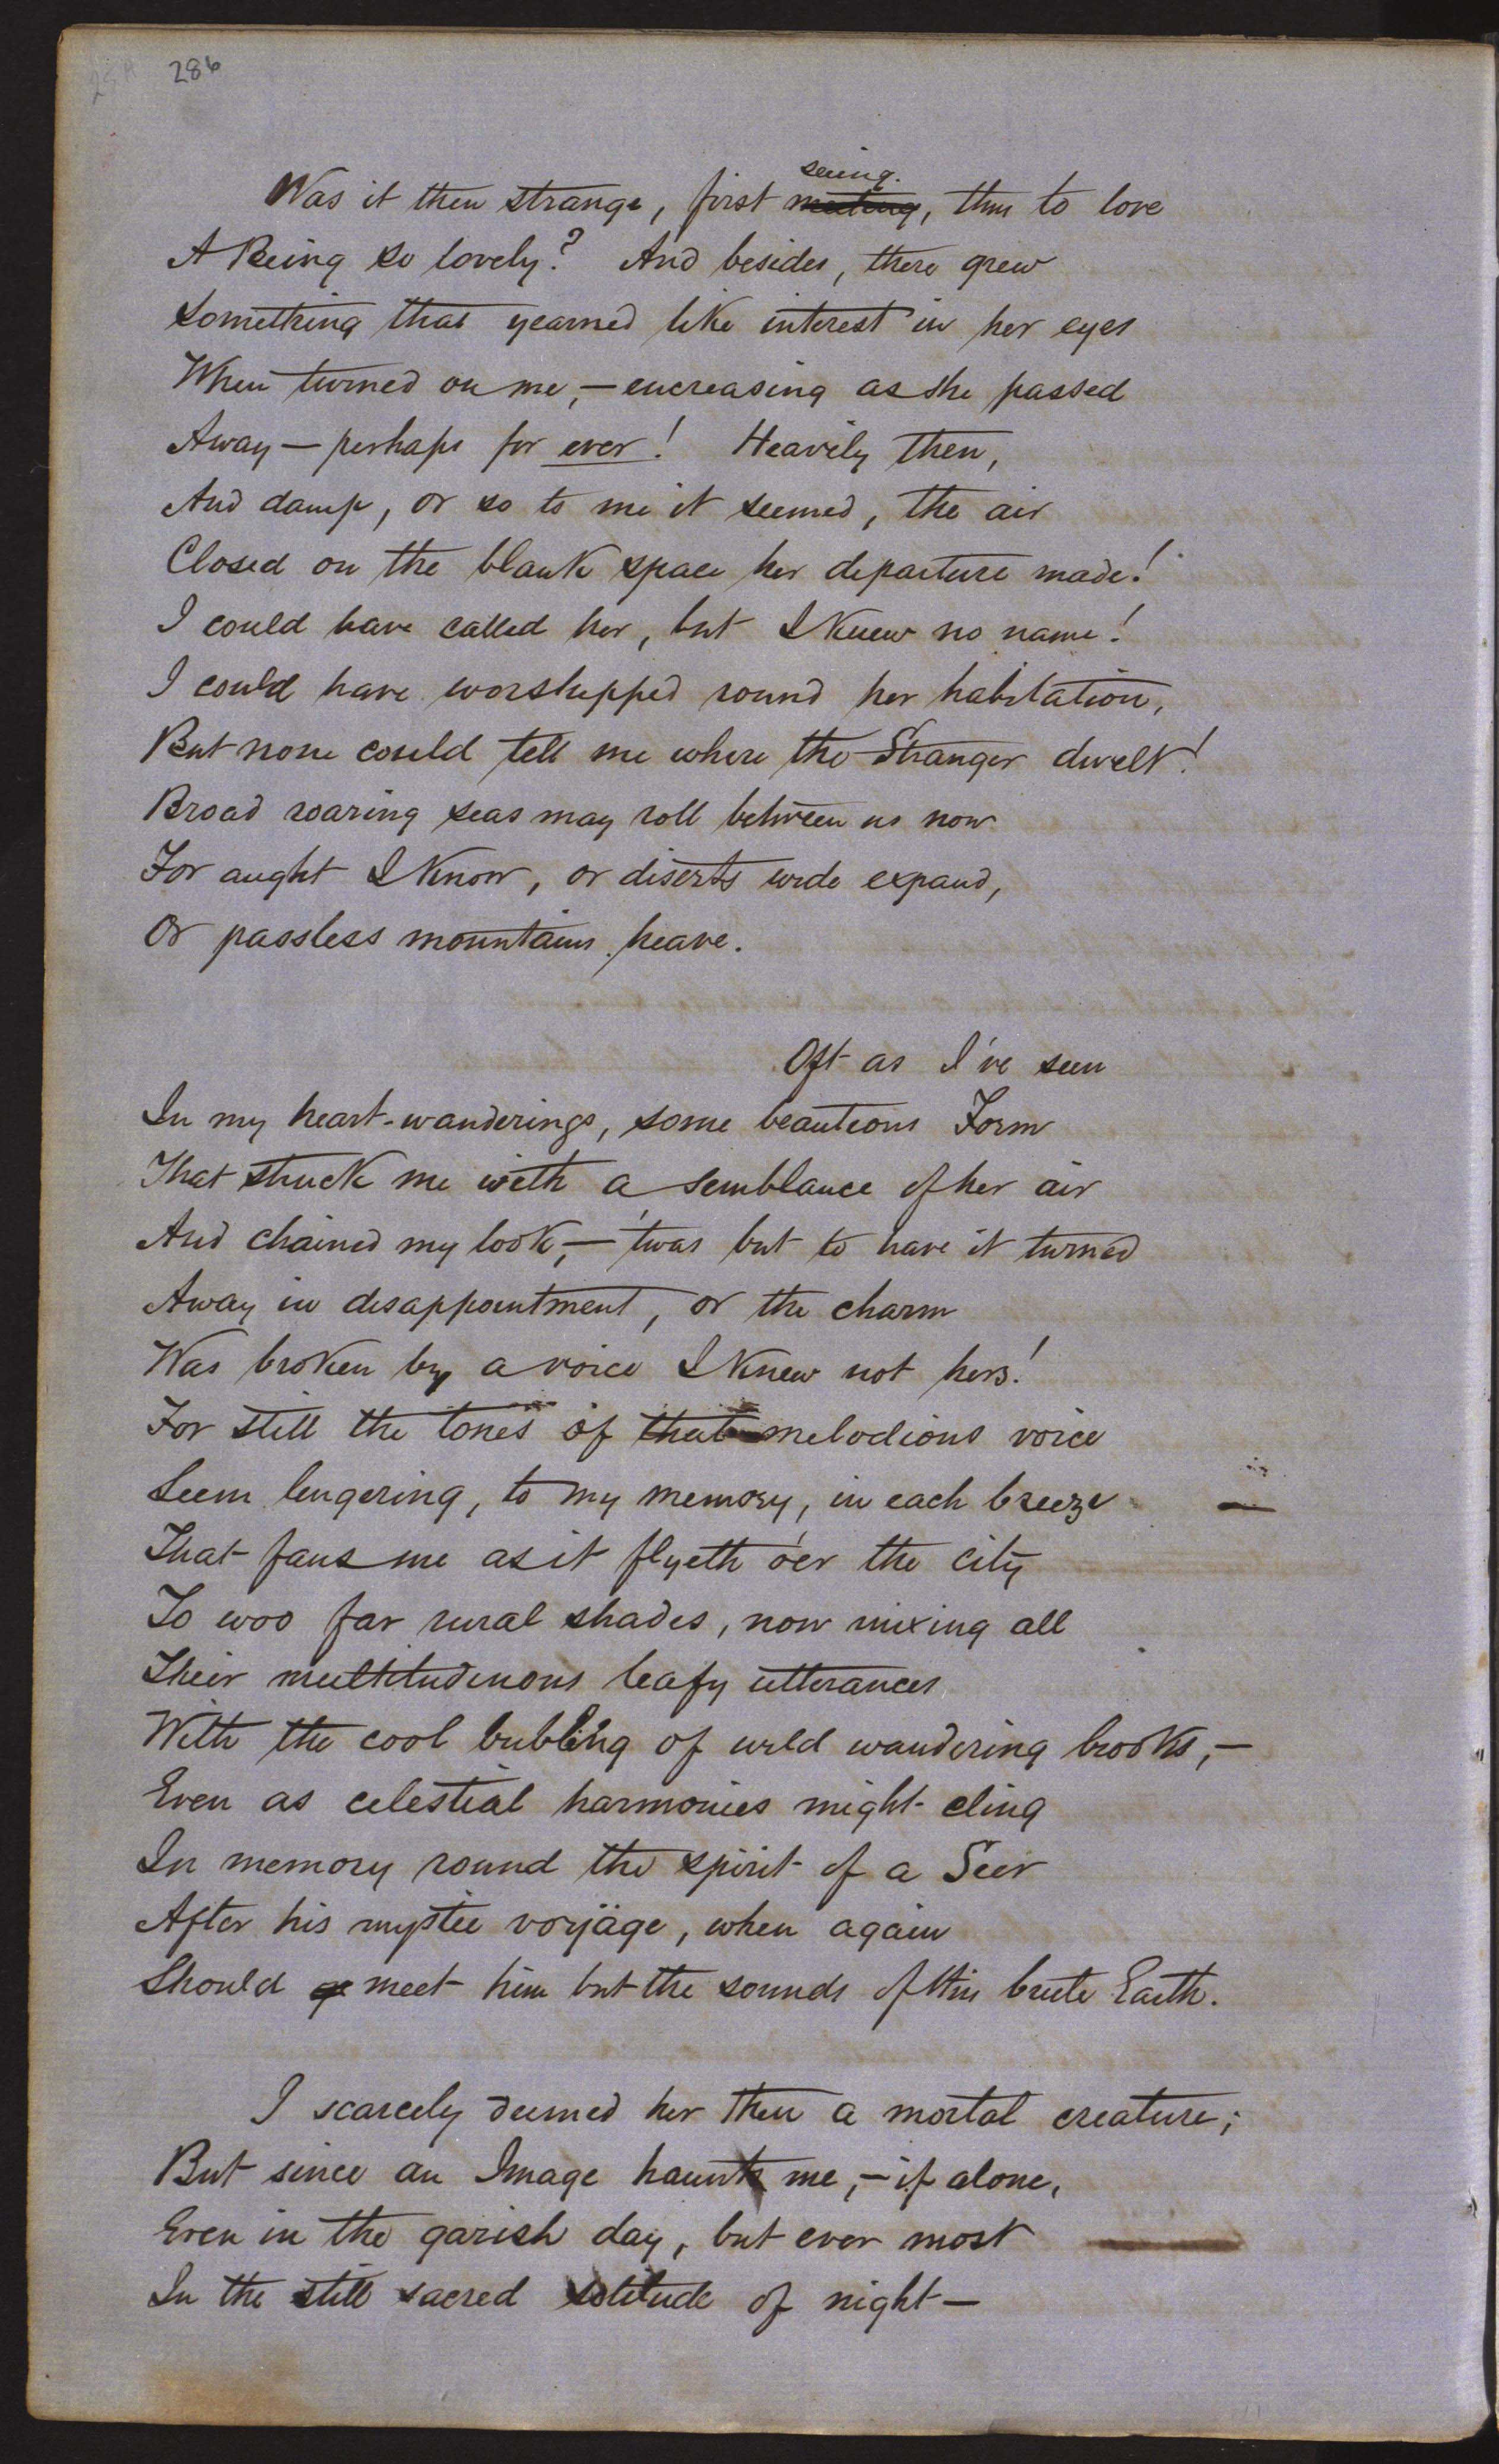 286
seeing.
Was it then strange, first meeting, thus to love
A Being so lovely? And besides, there grew
Something that yearned like interest in her eyes
When turned on me,—encreasing as she passed
Away—perhaps for ever! Heavily then,
And damp, or so to me it seemed, the air
Closed on the blank space her departure made!
I could have called her, but I knew no name!
I could have worshipped round her habitation,
But none could tell me where the Stranger dwelt!
Broad roaring seas may roll between us now
For aught I know, or diserts wide expand,
Or passless mountains heave.
Oft as I've seen
In my heart-wanderings, some beauteous Form
That struck me with a semblance of her air
And chained my look,—'twas but to have it turned
Away in disappointment, or the charm
Was broken by a voice I knew not hers!
For still the tones of that melodious voice
Seem lingering, to my memory, in each breeze
That fans me as it flyeth o'er the city
To woo far rural shades, now mixing all
Their multitudinous leafy utterances
With the cool bubbling of wild wandering brooks,—
Even as celestial harmonies might cling
In memory round the spirit of a Seer
After his mystic voyäge, when again
Should meet him but the sounds of this brute Earth.
I scarcely deemed her then a mortal creature;
But since an Image haunts me,—if alone,
Even in the garish day, but ever most
In the still sacred solitude of night—